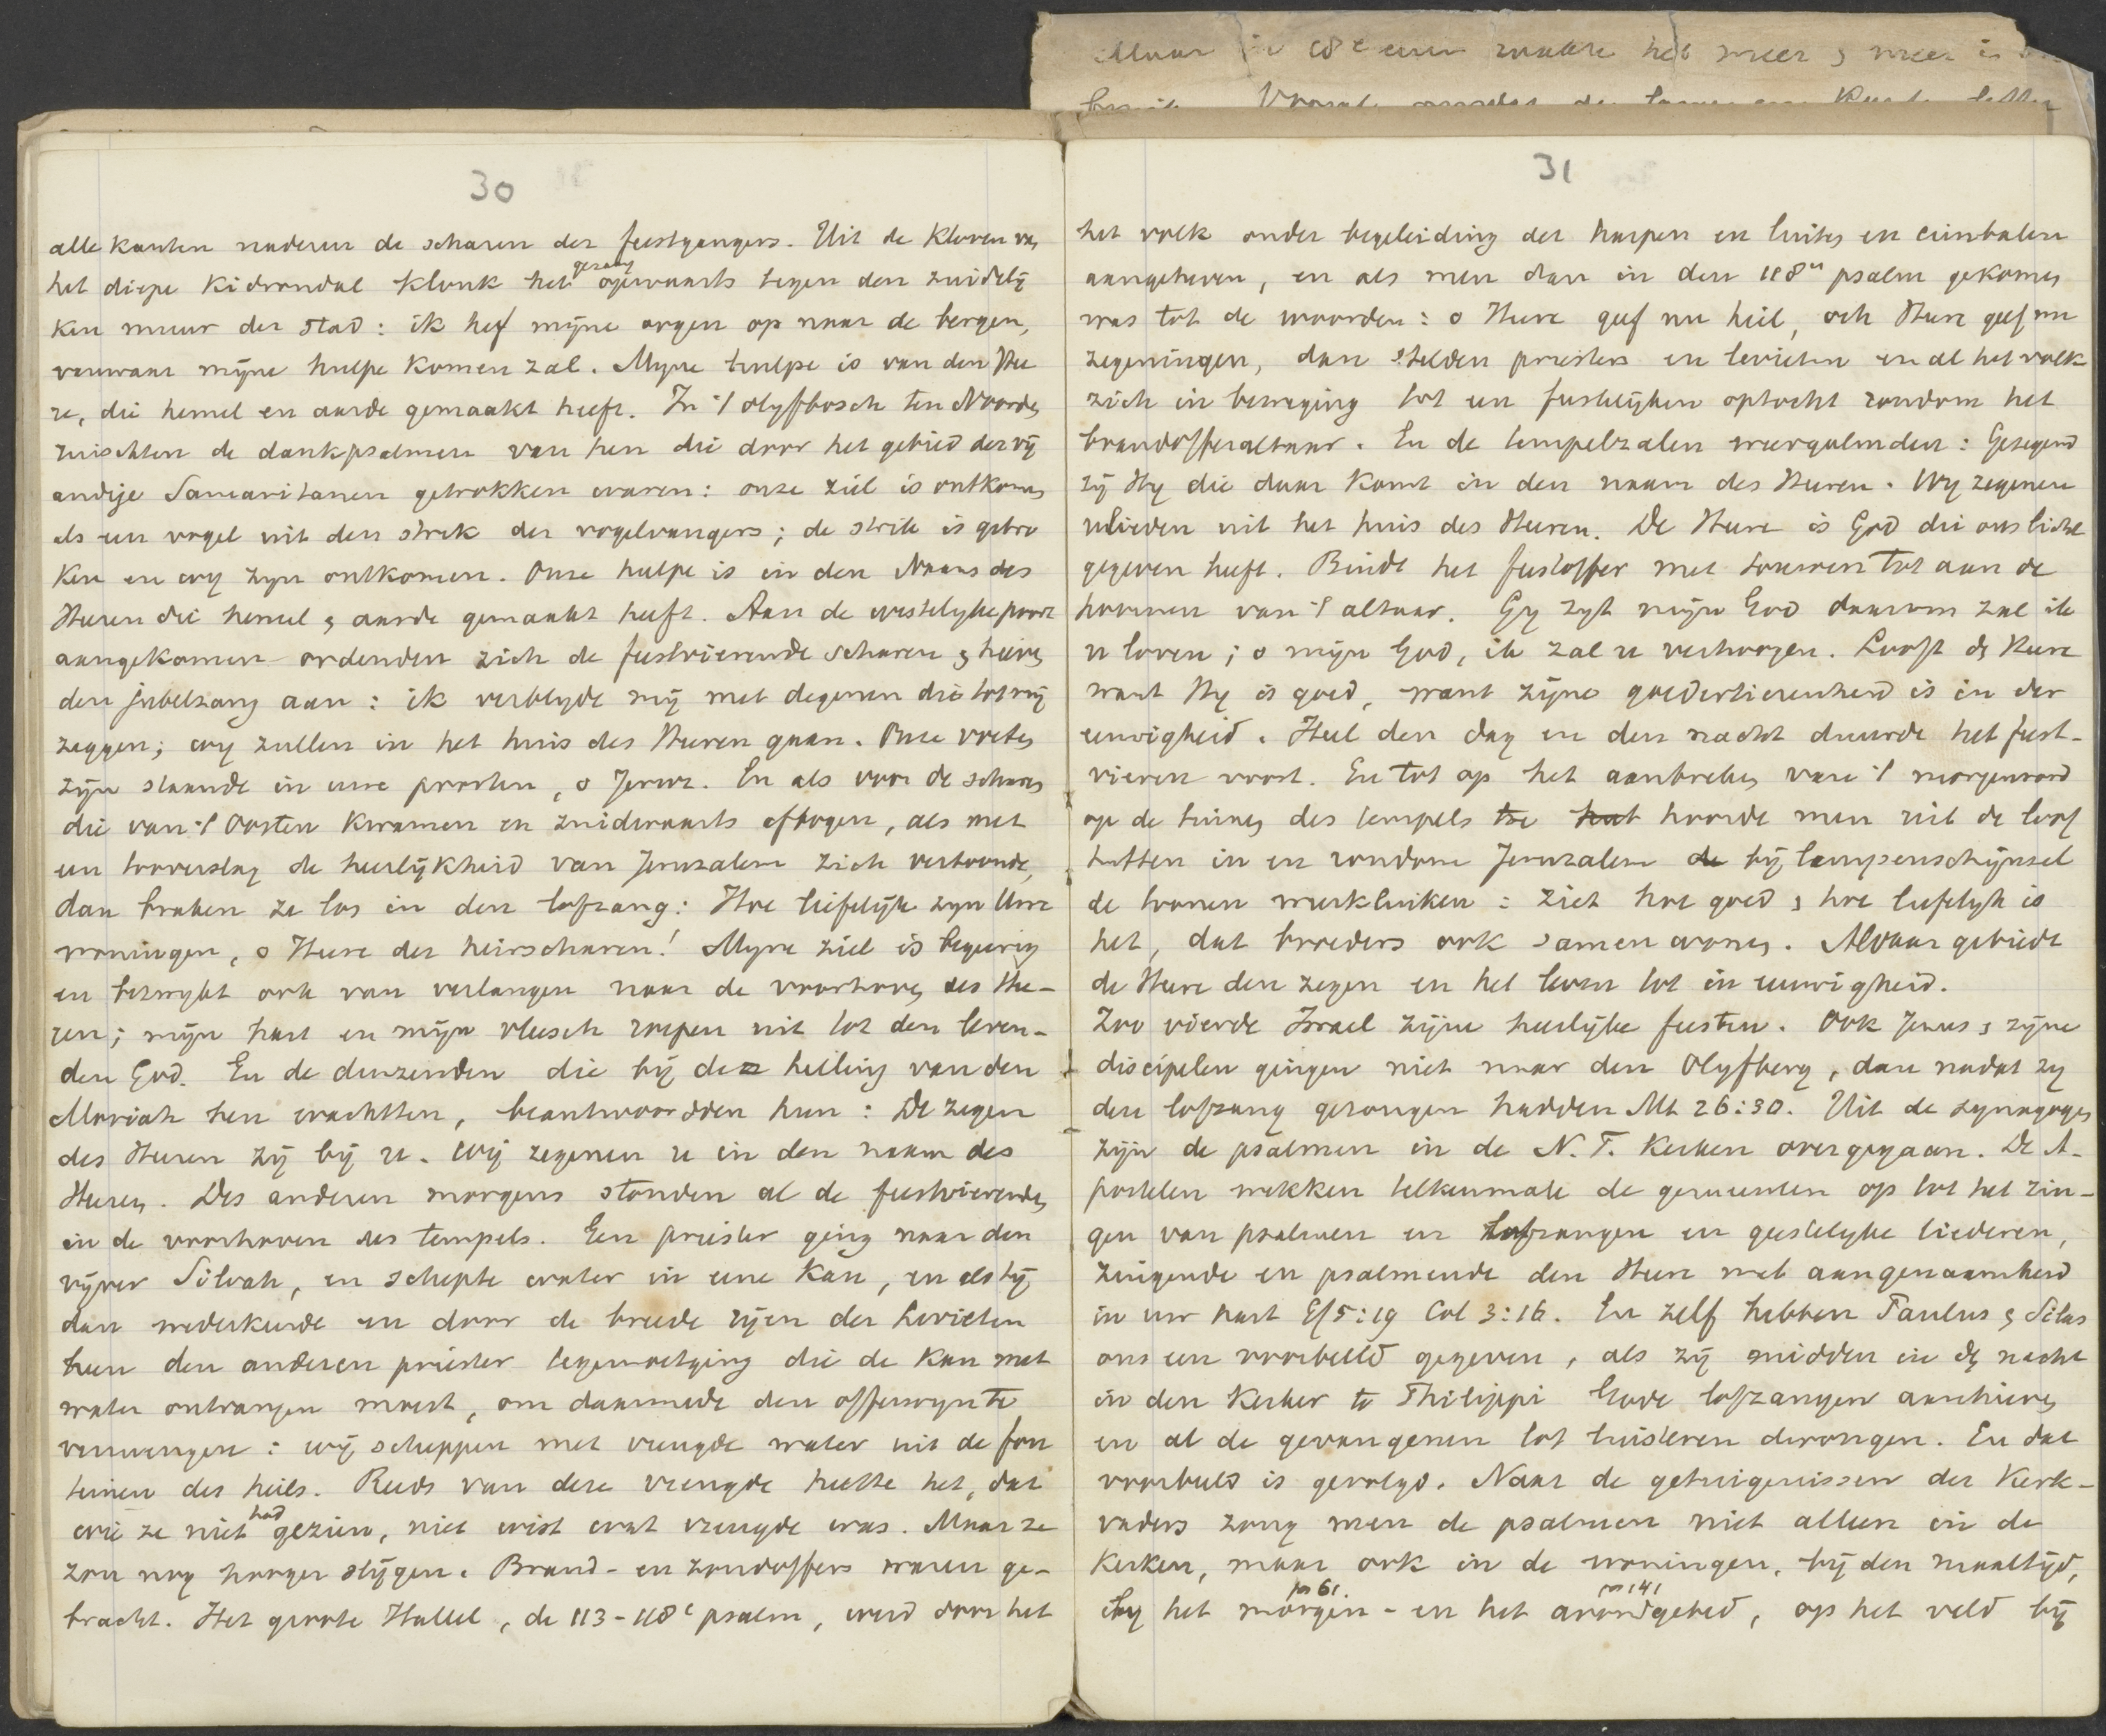 Maar in 18e eeuw raakte het meer & meer is
30
alle kanten naderen de scharen der feestgangers. Uit de kloven van
het diepe Kidrondal klonk het gezang opwaarts tegen den zuidelij
ken muur der stad: ik hef mijne oogen op naar de bergen,
vanwaar mijne hulpe komen zal. Myne hulpe is van den Hee
re, die hemel en aarde gemaakt heeft. In 't olyfbosch ten Noorden
ruischten de dankpsalmen van hen die door het gebied der vij
andige Samaritanen getrokken waren: onze ziel is ontkomen
als een vogel uit den strik der vogelvangers; de strik is gebro
ken en wy zyn ontkomen. Onze hulpe is in den Naam des
Heeren die hemel & aarde gemaakt heeft. Aan de westelyke poort
aangekomen ordenden zich de feestvierende scharen & hieven
den jubelzang aan: ik verblyde mij met degenen die tot mij
zeggen; wy zullen in het huis des Heeren gaan. Onze voeten
zijn staande in uwe poorten, o Jeruz. En als voor de scharen
die van 't Oosten kwamen en zuidwaarts aftogen, als met
een tooverslag de heerlijkheid van Jeruzalem zich vertoonde,
dan braken ze los in den lofzang: Hoe liefelijk zyn Uwe
woningen, o Heere der heirscharen! Myne ziel is begeerig
en bezwykt ook van verlangen naar de voorhoven des Hee-
ren; mijn hart en mijn vleesch roepen uit tot den leven-
den God. En de duizenden die bij de helling van den
Moriah hen wachtten, beantwoordden hun: De zegen
des Heeren zij bij u. Wij zegenen u in den naam des
Heeren. Des anderen morgens stonden al de feestvierenden
in de voorhoven des tempels. Een priester ging naar den
vijver Siloah, en schepte water in eene kan, en als hij
dan wederkeerde en door de breede rijen der Levieten
heen den anderen priester tegemoetging die de kan met
water ontvangen moest, om daarmede den offerwyn te
vermengen: wij scheppen met vreugde water uit de fon
teinen des heils. Reeds van deze vreugde heette het, dat
wie ze niet had gezien, niet wist wat vreugde was. Maar ze
zou nog hooger stijgen. Brand- en zondoffers waren ge-
bracht. Het groote Hallel, de 113-118e psalm, werd door het
31
het volk onder begeleiding der harpen en luiten en cimbalen
aangeheven, en als men dan in den 118n psalm gekomen
was tot de woorden: o Heere geef nu heil, och Heere geef nu
zegeningen, dan stelden priesters en levieten en al het volk
zich in beweging tot een feestelijken optocht rondom het
brandofferaltaar. En de tempelzalen weergalmden: Gezegend
zij Hy die daar komt in den naam des Heeren. Wy zegenen
ulieden uit het huis des Heeren. De Heere is God die ons licht
gegeven heeft. Bindt het feestoffer met touwen tot aan de
hoornen van 't altaar. Gy zyt mijn God daarom zal ik
u loven; o mijn God, ik zal u verhoogen. Looft den Heere
want Hy is goed, want zijne goedertierenheid is in der
eeuwigheid. Heel den dag en den nacht duurde het feest-
vieren voort. En tot op het aanbreken van 't morgenrood
op de tinnen des tempels toe hoorde men uit de loof
hutten in en rondom Jeruzalem bij lampenschijnsel
de tonen weerklinken: ziet hoe goed & hoe liefelyk is
het, dat broeders ook samen wonen. Aldaar gebiedt
de Heere den zegen en het leven tot in eeuwigheid.
Zoo vierde Israel zijne heerlijke feesten. Ook Jezus & zijne
discipelen gingen niet naar den Olyfberg, dan nadat zy
den lofzang gezongen hadden Mt 26:30. Uit de synagogen
zijn de psalmen in de N.T. kerken overgegaan. De A-
postelen wekken telkenmale de gemeenten op tot het zin-
gen van psalmen en lofzangen en geestelyke liederen,
zingende en psalmende den Heere met aangenaamheid
in uw hart Ef 5:19 Col 3:16. En zelf hebben Paulus & Silas
ons een voorbeeld gegeven, als zij midden in den nacht
in den kerker te Philippi Gode lofzangen aanhieven
en al de gevangenen tot luisteren drongen. En dat
voorbeeld is gevolgd. Naar de getuigenissen der kerk-
vaders zong men de psalmen niet alleen in de
kerken, maar ook in de woningen, bij den maaltijd,
by het morgen- ps 61. en het avondgebed ps 141, op het veld bij